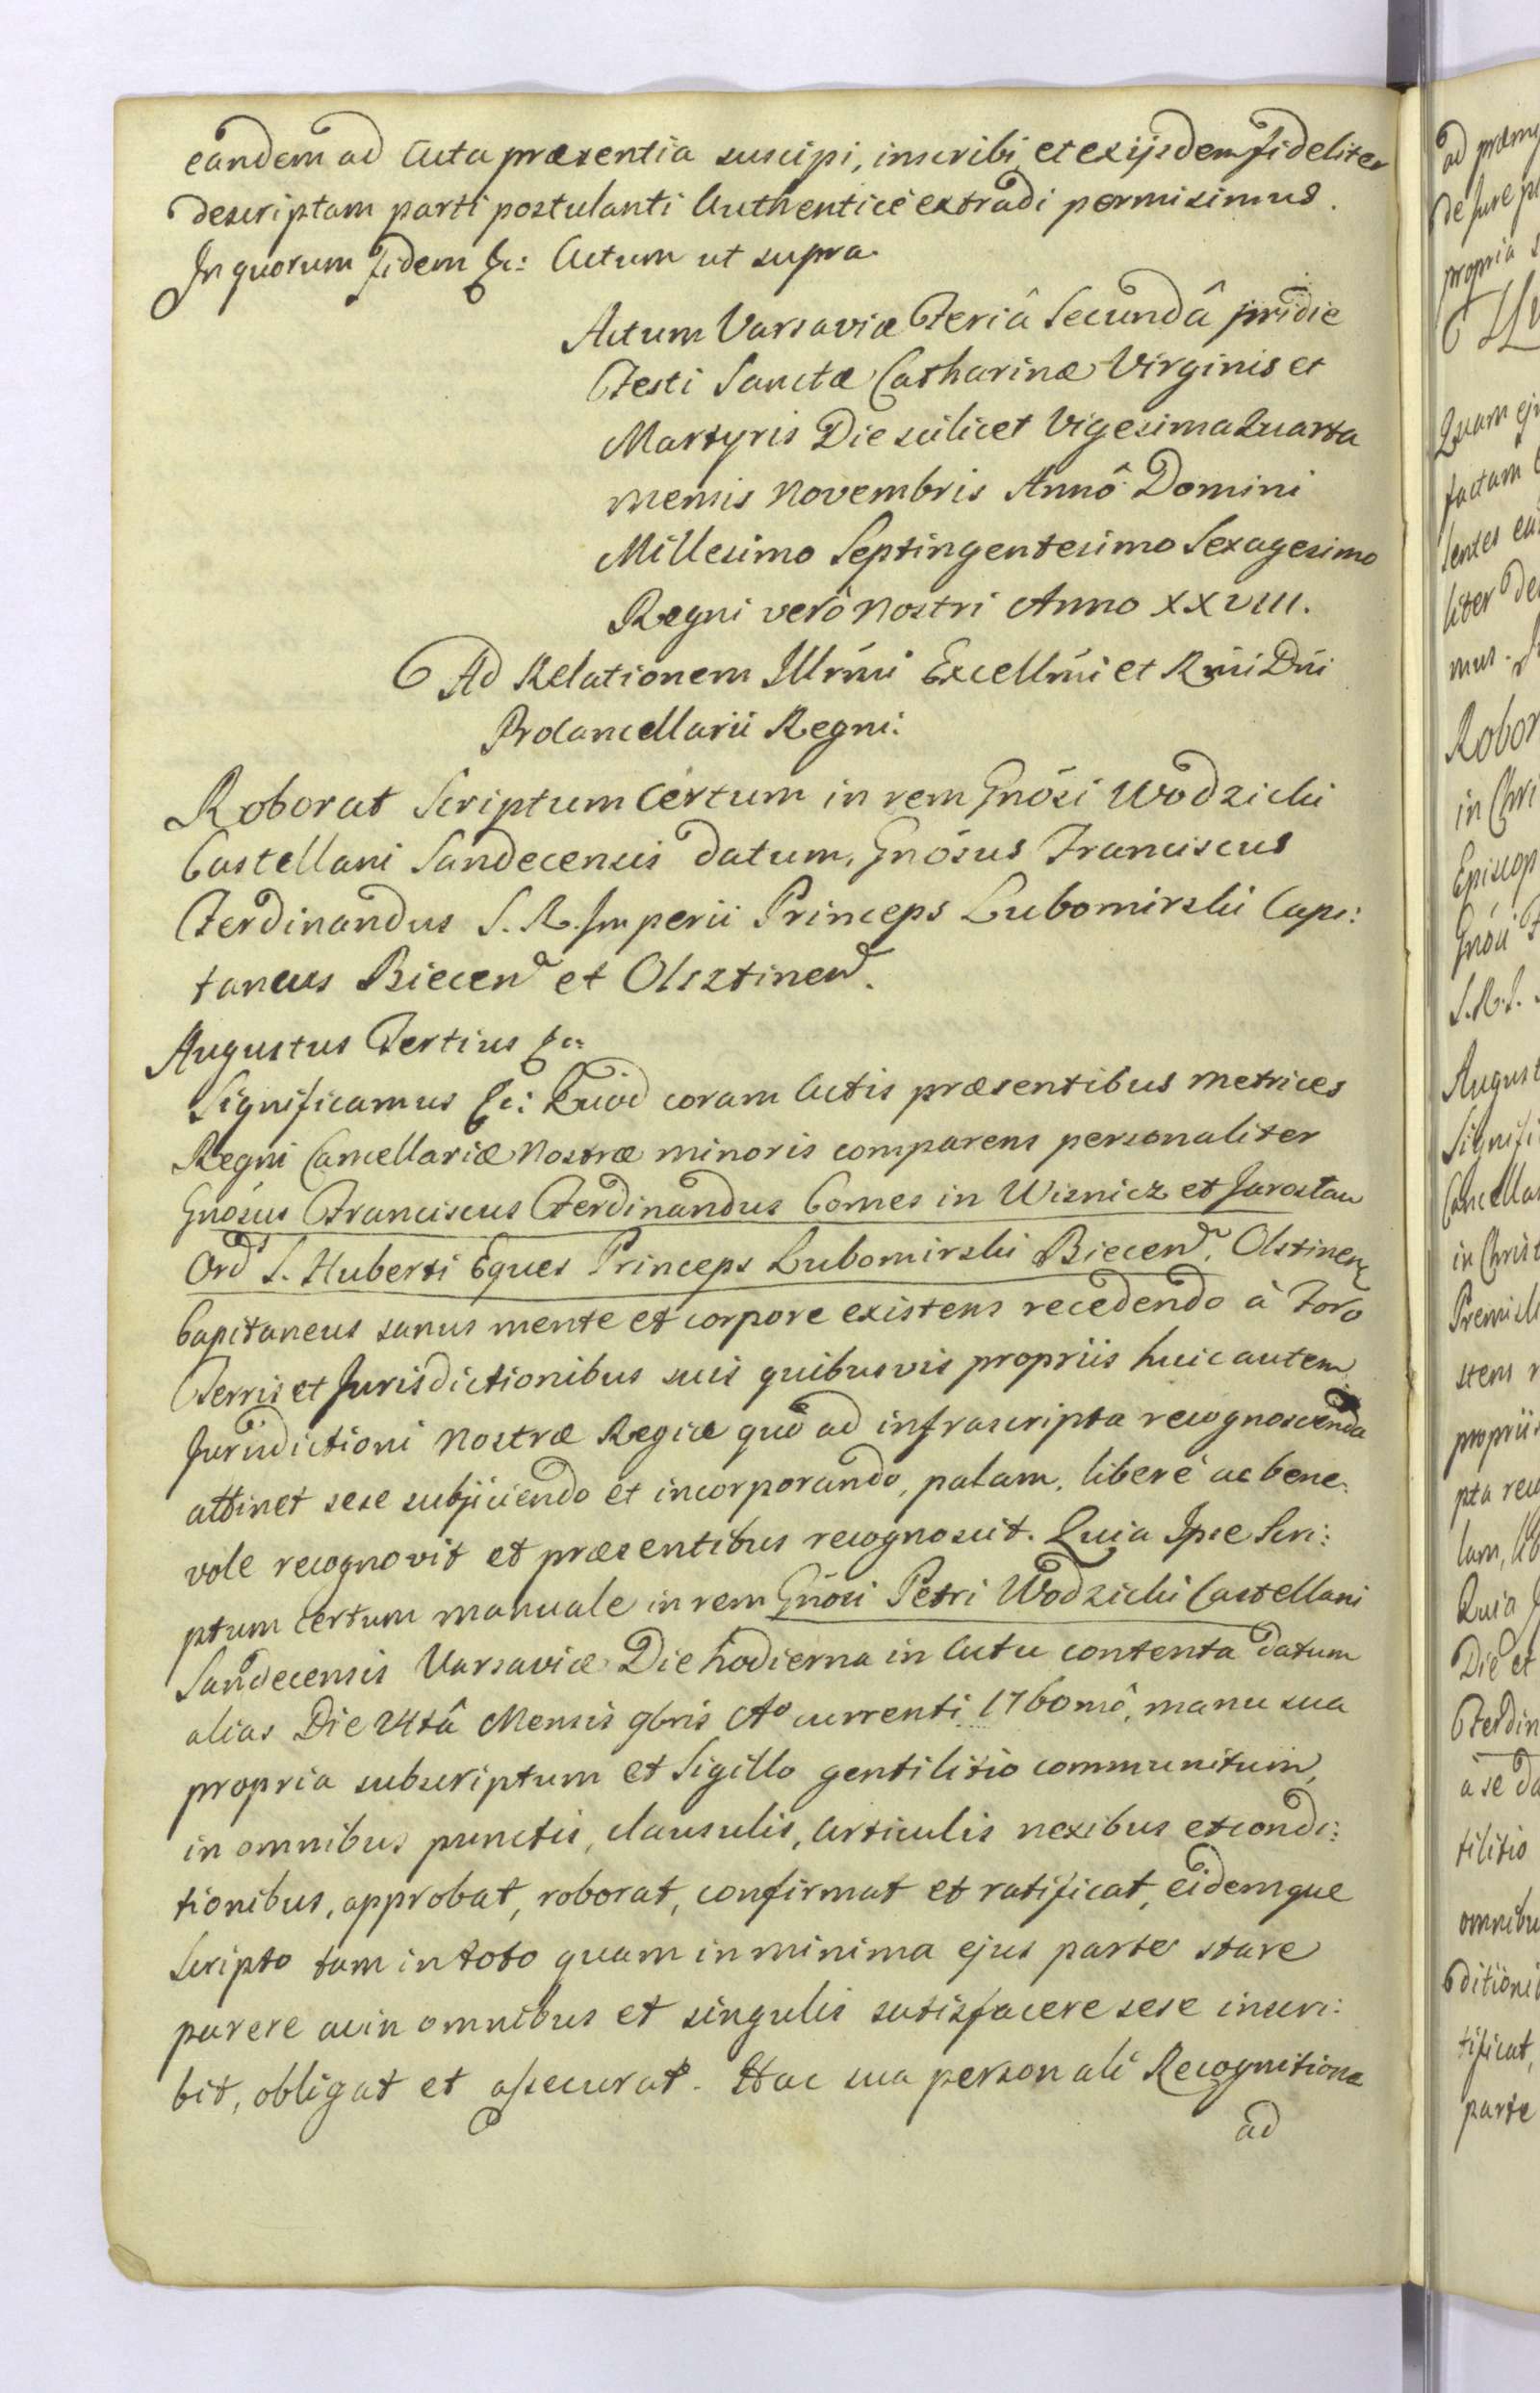 eandem ad Acta præsentia suscipi, inscribi et ex ijsdem fideliter
descriptam parti postulanti Authenticè extradi permisimus.
In quorum fidem &c: Actum ut supra.
Actum Varsaviæ Feriâ Secundâ pridie
Festi Sanctæ Catharinæ Virginis et
Martyris Die scilicet Vigesima Quarta
mensis Novembris Annô Domini
Millesimo Septingentesimo Sexagesimo
Regni verò Nostri Anno XXVIII.
Ad Relationem Illrmi Excellmi et Rmi Dni
Procancellarii Regni:
Roborat Scriptum Certum in rem Gnósi Wodzicki
Castellani Sandecensis datum, Gnósus Franciscus
Ferdinandus S. R. Imperii Princeps Lubomirski Capi:
taneus Biecen et Olsztinen.
Augustus Tertius &c:
Significamus &c: Quod coram Actis præsentibus Metrices
Regni Cancellariæ Nostræ minoris comparens personaliter
Gnósus Franciscus Ferdinandus Comes in Wisnicz et Jaroslau
Ord S. Huberti Eques Princeps Lubomirski Biecen, Olstinen
Capitaneus sanus mente et corpore existens recedendo à Foro
Terris et Jurisdictionibus suis quibusvis propriis huic autem
Jurisdictioni Nostræ Regiæ quò ad infrascripta recognoscenda
attinet sese subjiciendo et incorporando, palam, liberè ac bene:
vole recognovit et præsentibus recognoscit. Quia Ipse Scri:
ptum certum manuale in rem Gnósi Petri Wodzicki Castellani
Sandecensis Varsaviæ Die hodierna in Actu contenta datum
alias Die 24tâ Mensis 9bris Ao currenti 1760mô, manu sua
propria subscriptum et Sigillo gentilitio communitum,
in omnibus punctis, clausulis, Articulis nexibus et condi:
tionibus, approbat, roborat, confirmat et ratificat, eidemque
Scripto tam in toto quam in minima ejus parte stare
parere ac in omnibus et singulis satisfacere sese inscri:
bit, obligat et assecurat. Hac sua personali Recognitione
ad